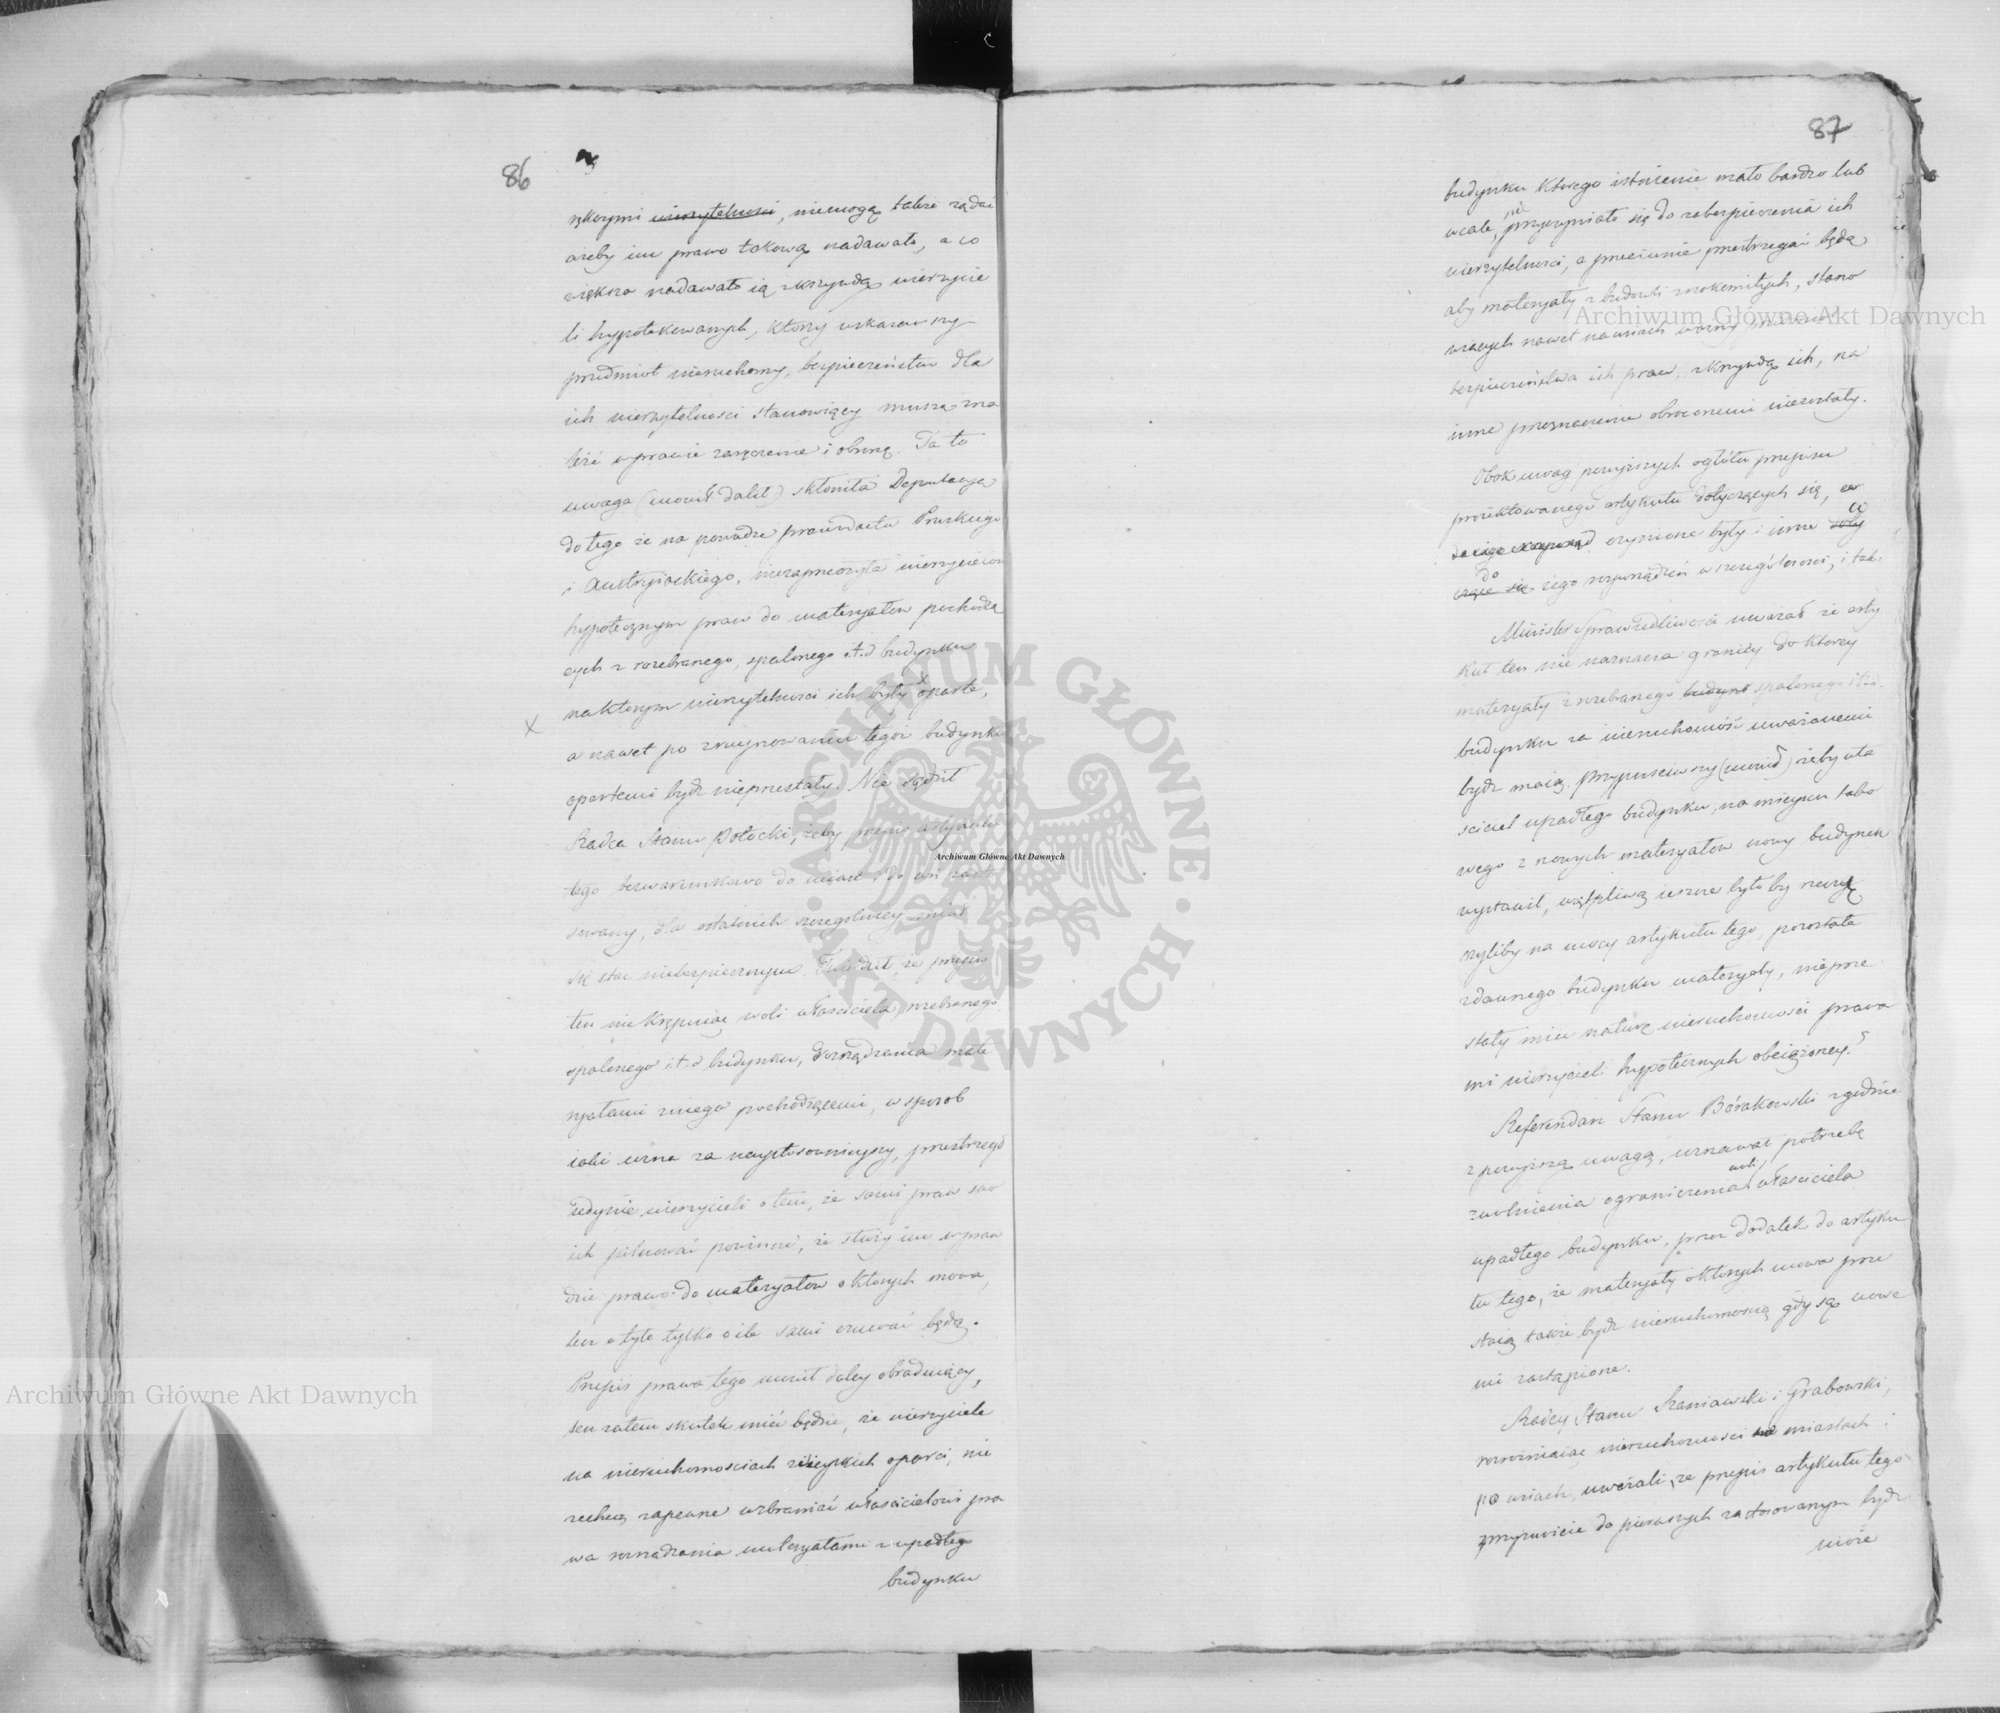 86
rękoymi wierzytelności, niemogą także żądać
ażeby im prawo takową nadawało, a co
większa nadawało ią z krzywdą wierzycie
li hypotekowanych, którzy wskazawszy
przedmiot nieruchomy, bezpieczeństwo dla
ich wierzytelności stanowiący muszą zna
leźć w prawie zaręczenie i obronę. Ta to
uwaga (mówił daléy) skłoniła Deputacyą
do tego że na powadze prawodactw Pruskiego
i Austryackiego, niezaprzeczyła wierzycielom
hypotecznym praw do materyałów pochodzą
cych z rozebranego, spalonego i t. d. budynku
na którym wierzytelności ich były oparte,
X
a nawet po zruynowaniu tegoż budynku
opartemi bydź nieprzestały. Nie sądził
Radca Stanu Potocki, żeby przepis artykułu
tego bezwarunkowo do miast i do wsi zasto
sowany, dla ostatnich szczególniey miał
się stać niebezpiecznym. Twierdził, że przepis
ten nie krępuiąc woli właściciela, rozebranego
spalonego i. t. d budynku, rozrządzania mate
ryałami z niego pochodzącemi, w sposób
iaki uzna za naystosownieyszy, przestrzegł
iedynie wierzycieli o tem, że sami praw swo
ich pilnować powinni, że służy im w praw
dzie prawo do materyałów o których mowa,
lecz o tyle tylko o ile sami czuwać będą.
Przepis prawa tego mówił daley obraduiący,
ten zatem skutek mieć będzie, że wierzyciele
na nieruchomościach wieyskich oparci, nie
zechcą zapewne wzbraniać właścicielowi pra
wa rozrządzania materyałami z upadłego
budynku
87
budynku którego istnienie mało bardzo lub
wcale nie przyczyniało się do zabezpieczenia ich
wierzytelności, a przeciwnie przestrzegać będą
aby materyały z budowli znakomitych, stano
wiących nawet na wsiach ważny
bezpieczeństwa ich praw, z krzywdą ich, na
inne przeznaczenie obróconemi niezostały.
Obok uwag powyższych ogółu przepisu
proiektowanego artykułu dotyczących się,
czynione były i inne co
do iego rozporządzeń w szczególności, i tak.
Minister Sprawiedliwości uważał że arty
kuł ten nie naznacza granicy do którey
materyały z rozebranego budynk spalonego i t. d.
budynku za nieruchomość uważanemi
bydź maią. Przypuściwszy (mówił) żeby wła
ściciel upadłego budynku, na mieyscu tako
wego z nowych materyałów nowy budynek
wystawił, wątpliwą ieszcze było by rzeczą
czyliby na mocy artykułu tego, pozostałe
z dawnego budynku materyały, nieprze
stały mieć naturę nieruchomości prawa
mi wierzycieli hypotecznych obciążoney?
Referendarz Stanu Borakowski zgodnie
z powyższą uwagą, uznawał potrzebę
zwolnienia ograniczenia woli właściciela
upadłego budynku, przez dodatek do artyku
łu tego, że materyały o których mowa prze
staią także bydź nieruchomością gdy są nowe
mi zastąpione.
Radcy Stanu Staniawski i Grabowski,
rozróżniaiąc nieruchomości w miastach i
po wsiach, uważali, że przepis artykułu tego
przyzwoicie do pierwszych zastosowanym bydź
może
Archiwum Główne Akt Dawnych
Archiwum Główne Akt Dawnych
Archiwum Główne Akt Dawnych
ARCHIWUM GŁÓWNE · AKT DAWNYCH ·